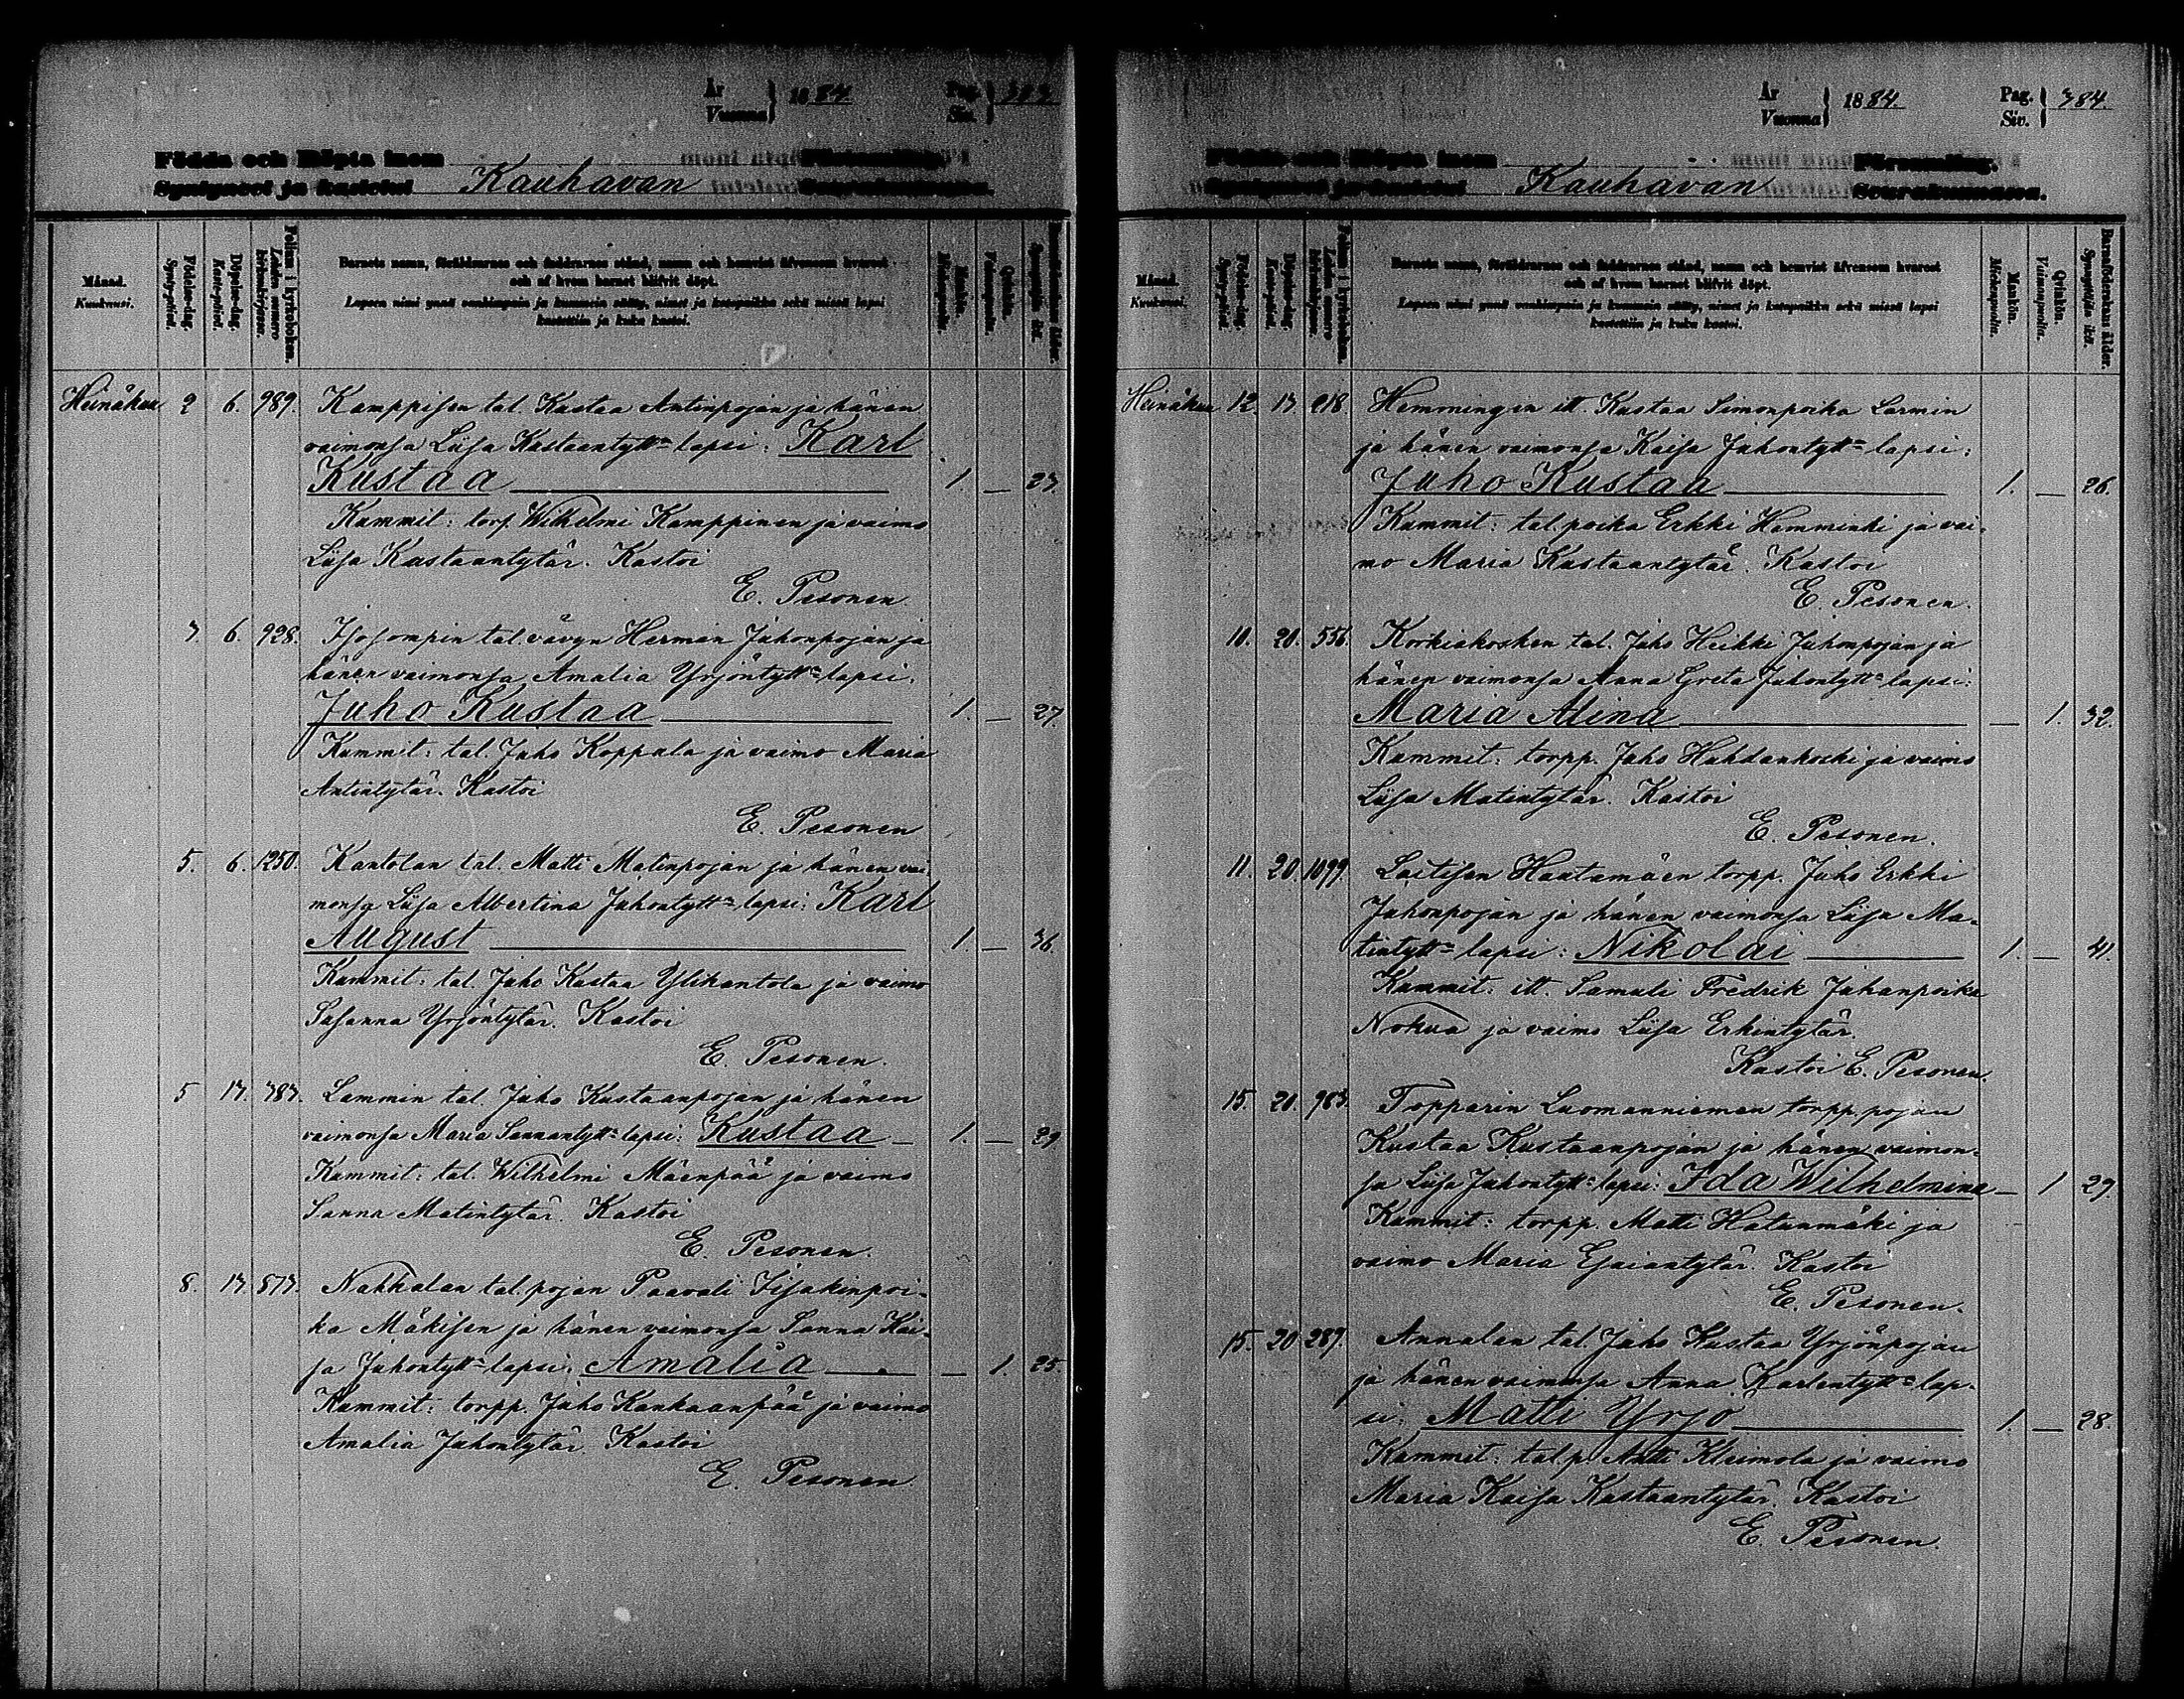 År
Vuonna } 1884
Pag.
Siv. } 383.
Födda och Döpta inom Församling.
Syntyneet ja kastetut Kauhavan Seurakunnassa.
Månad.
Kuukausi.
Födelse-dag.
Synty-päivä.
Döpelse-dag.
Kaste-päivä.
Folium i kyrkoboken.
Lehden numero kirkonkirjassa.
Barnets namn, föräldrarnes och faddrarnes stånd, namn och hemvist äfvensom hvarest
och af hvem barnet blifvit döpt.
Lapsen nimi ynnä vanhempain ja kummein sääty, nimet ja kotopaikka sekä missä lapsi
kastettiin ja kuka kastoi.
Mankön.
Miehenpuolta.
Qvinkön.
Vaimonpuolta.
Barnaföderskans ålder.
Synnyttäjän ikä.
Heinäkuu 2 6. 989. Kamppisen tal. Kustaa Antinpojan ja hänen
vaimonsa Liisa Kustaantytt= lapsi: Karl
Kustaa 1. — 23.
Kummit: torp. Wilhelmi Kamppinen ja vaimo
Liisa Kustaantytär. Kastoi
E. Pesonen.
3. 6. 928. Isosompin tal. vävyn Herman Juhonpojan ja
hänen vaimonsa Amalia Yrjöntytt= lapsi:
Juho Kustaa 1. — 27.
Kummit: tal. Juho Koppala ja vaimo Maria
Antintytär. Kastoi
E. Pesonen
5. 6. 1250. Kantolan tal. Matti Matinpojan ja hänen vai
monsa Liisa Albertina Juhontytt= lapsi: Karl
August 1. — 36.
Kummit: tal. Juho Kustaa Ylikantola ja vaimo
Susanna Yrjöntytär. Kastoi
E. Pesonen.
5 13. 383. Lammin tal. Juho Kustaanpojan ja hänen
vaimonsa Maria Sannantytt= lapsi: Kustaa — 1. — 29.
Kummit: tal. Wilhelmi Mäenpää ja vaimo
Sanna Matintytär. Kastoi
E. Pesonen.
8. 13. 573. Nahkalan tal. pojan Paavali Iisakinpoi-
ka Mäkisen ja hänen vaimonsa Sanna Kai-
sa Juhontytt= lapsi: Amalia — 1. 25.
Kummit: torpp. Juho Kankaanpää ja vaimo
Amalia Juhontytär. Kastoi
E. Pesonen.
År
Vuonna } 1884.
Pag.
Siv. } 384.
Födda och Döpta inom Församling.
Syntyneet ja kastetut Kauhavan Seurakunnassa.
Månad.
Kuukausi.
Födelse-dag.
Synty-päivä.
Döpelse-dag.
Kaste-päivä.
Folium i kyrkoboken.
Lehden numero kirkonkirjassa.
Barnets namn, föräldrarnes och faddrarnes stånd, namn och hemvist äfvensom hvarest
och af hvem barnet blifvit döpt.
Lapsen nimi ynnä vanhempain ja kummein sääty, nimet ja kotopaikka sekä missä lapsi
kastettiin ja kuka kastoi.
Mankön.
Miehenpuolta.
Qvinkön.
Vaimonpuolta.
Barnaföderskans ålder.
Synnyttäjän ikä.
Heinäkuu 12 13. 218. Hemmingin itt. Kustaa Simonpoika Larmin
ja hänen vaimonsa Kaisa Juhontytt= lapsi:
Juho Kustaa 1. — 26.
Kummit: tal. poika Erkki Hemminki ja vai-
mo Maria Kustaantytär. Kastoi
E. Pesonen.
10. 20. 556. Korkiakosken tal. Juho Heikki Juhonpojan ja
hänen vaimonsa Anna Greta Juhontytt= lapsi:
Maria Alina — 1. 32.
Kummit: torpp. Juho Huhdankoski ja vaimo
Liisa Matintytär. Kastoi
E. Pesonen.
11. 20. 1099. Laitisen Hautamäen torpp. Juho Erkki
Juhonpojan ja hänen vaimonsa Liisa Ma-
tintytt= lapsi: Nikolai 1. — 41.
Kummit: itt. Samuli Fredrik Juhanpoika
Nokua ja vaimo Liisa Erkintytär.
Kastoi E. Pesonen.
15. 20. 983. Topparin Luomanniemen torpp. pojan
Kustaa Kustaanpojan ja hänen vaimon-
sa Liisa Juhontytt= lapsi: Ida Wilhelmina — 1 29
Kummit: torpp. Matti Hatunmäki ja
vaimo Maria Esaiantytär. Kastoi
E. Pesonen.
15. 20 289. Annalan tal. Juho Kustaa Yrjönpojan
ja hänen vaimonsa Anna Karlentytt= lap-
si: Matti Yrjö 1. — 28.
Kummit: tal. p. Antti Kleimola ja vaimo
Maria Kaisa Kustaantytär. Kastoi
E. Pesonen.